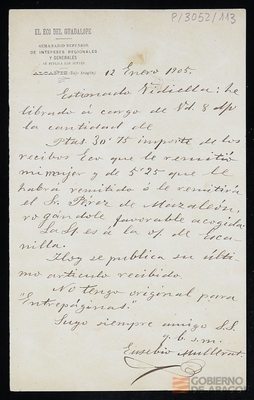 P/3052/113
EL ECO DEL GUADALOPE
SEMANARIO DEFENSOR
DE INTERESES REGIONALES
Y GENERALES
SE PUBLICA LOS JUEVES
ALCAÑIZ (Bajo Aragón)
12 Enero 1905.
Estimado Vidiella: he
librado á cargo de Vd. 8 d/v
la cantidad de
Ptas 30'75 importe de los
recibos Eco que le remitió
mi mujer y de 5'25 que le
habrá remitido ó le remitirá
el Sr. Pérez de Mazaleón,
rogándole favorable acogida.
La L/ es á la o/ de Esca-
nilla.
Hoy se publica su últi-
mo artículo recibido.
No tengo original para
"Entrepáginas."
Suyo siempre amigo S.S.
q. b. s. m.
Eusebio Mullerat
GOBIERNO
DE ARAGON